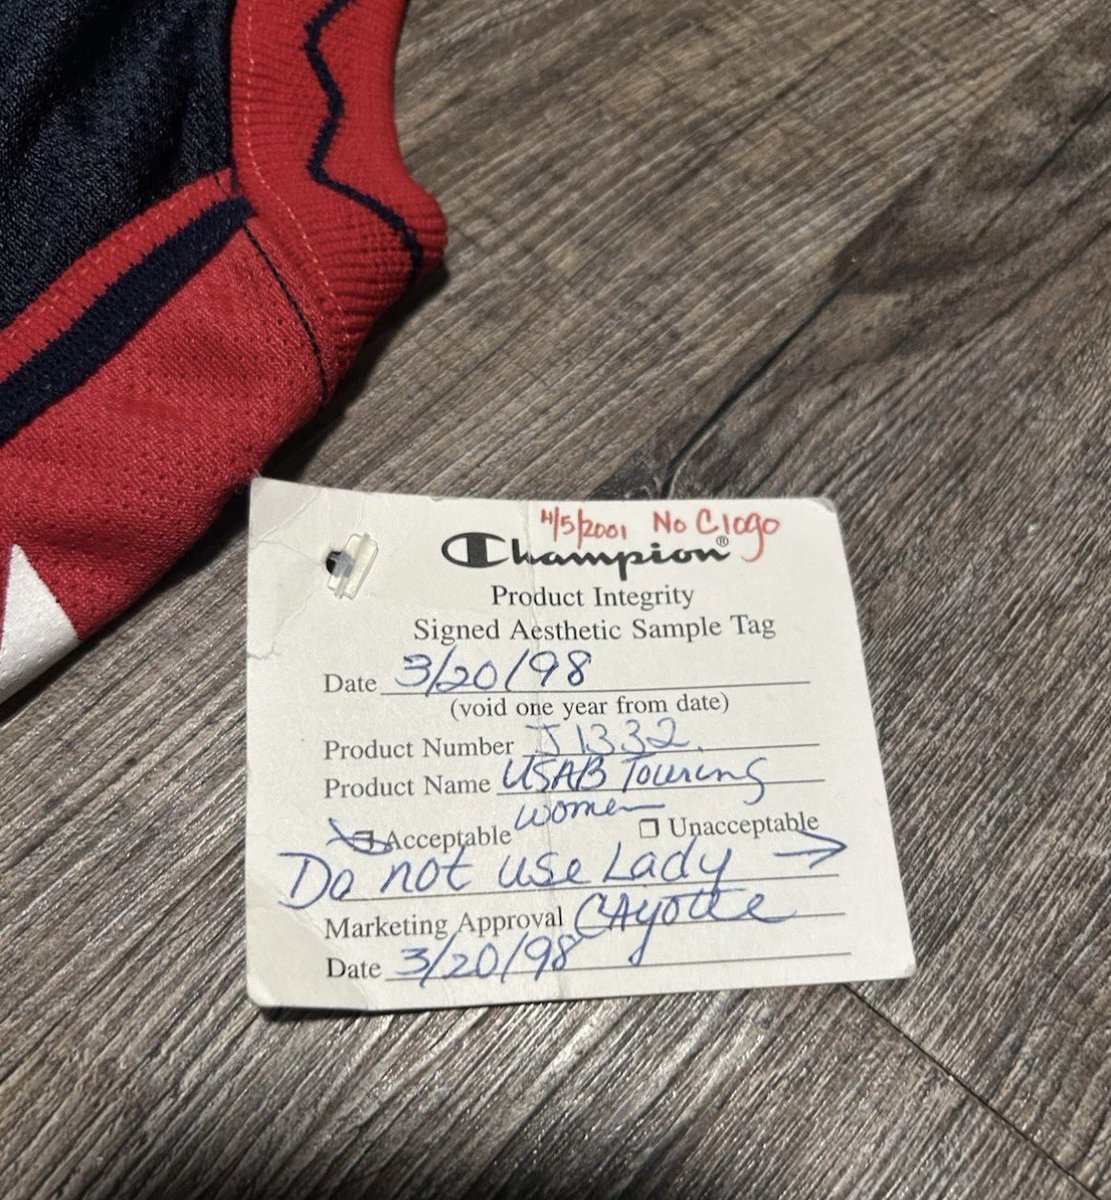 4/5/2001 No C logo
Champion®
Product Integrity
Signed Aesthetic Sample Tag
Date 3/20/98
(void one year from date)
Product Number J1332
Product Name USAB Touring
women
Acceptable Unacceptable
Do not use Lady →
Marketing Approval CAyotte
Date 3/20/98